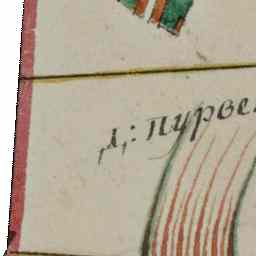 д: пурве